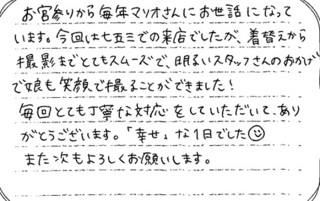 お宮参りから毎年マリオさんにお世話になって
います。今回は七五三での来店でしたが、着替えから
撮影までとてもスムーズで、明るいスタッフさんのおかげ
で娘も笑顔で撮ることができました!
毎回とても丁寧な対応をしていただいて、あり
がとうございます。「幸せ」な1日でした☺
また次もよろしくお願いします。